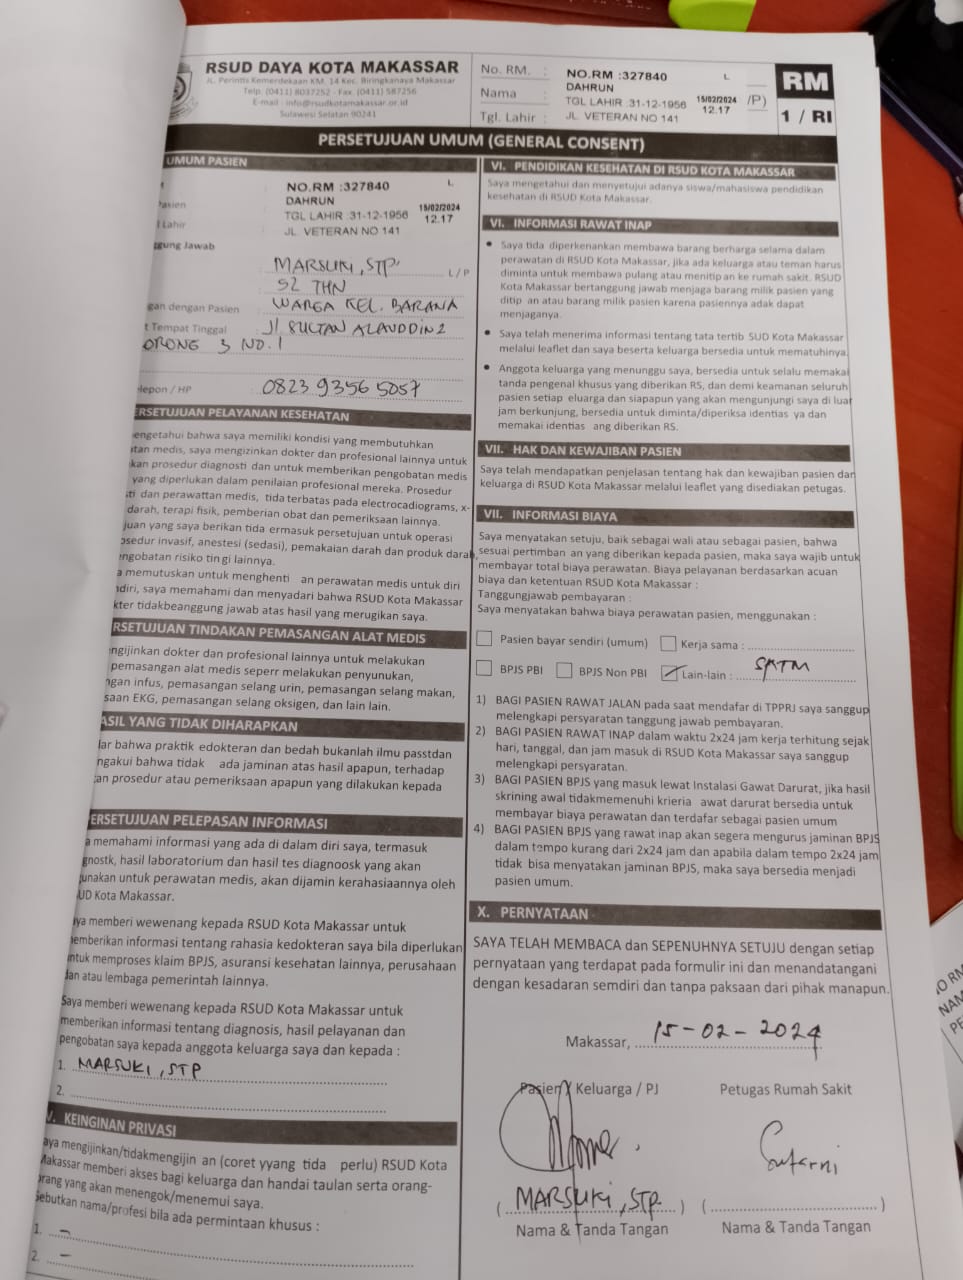 RSUD DAYA KOTA MAKASSAR
JL. Perintis Kemerdekaan KM. 14 Kec. Biringkanaya Makassar
Telp. (0411) 8037252 - Fax. (0411) 587256
E-mail : info@rsudkotamakassar.or.id
Sulawesi Selatan 90241
No. RM. :
Nama :
Tgl. Lahir :
NO.RM :327840 L
DAHRUN
TGL LAHIR :31-12-1956
JL. VETERAN NO 141
15/02/2024
12.17
/P)
RM
1 / RI
PERSETUJUAN UMUM (GENERAL CONSENT)
UMUM PASIEN
NO.RM :327840 L
DAHRUN
TGL LAHIR :31-12-1956
JL. VETERAN NO 141
15/02/2024
12.17
Pasien
Lahir
ggung Jawab
MARSUKI, STP L / P
52 THN
gan dengan Pasien WARGA KEL. BARANA
t Tempat Tinggal Jl SULTAN ALAUDDIN 2
ORONG 3 NO. 1
elepon / HP 0823 9356 5057
ERSETUJUAN PELAYANAN KESEHATAN
engetahui bahwa saya memiliki kondisi yang membutuhkan
atan medis, saya mengizinkan dokter dan profesional lainnya untuk
kan prosedur diagnosti dan untuk memberikan pengobatan medis
yang diperlukan dalam penilaian profesional mereka. Prosedur
sti dan perawattan medis, tida terbatas pada electrocadiograms, x-
darah, terapi fisik, pemberian obat dan pemeriksaan lainnya.
juan yang saya berikan tida ermasuk persetujuan untuk operasi
osedur invasif, anestesi (sedasi), pemakaian darah dan produk darah,
engobatan risiko tin gi lainnya.
a memutuskan untuk menghenti an perawatan medis untuk diri
ndiri, saya memahami dan menyadari bahwa RSUD Kota Makassar
kter tidakbeanggung jawab atas hasil yang merugikan saya.
RSETUJUAN TINDAKAN PEMASANGAN ALAT MEDIS
engijinkan dokter dan profesional lainnya untuk melakukan
pemasangan alat medis seperr melakukan penyunukan,
ngan infus, pemasangan selang urin, pemasangan selang makan,
saan EKG, pemasangan selang oksigen, dan lain lain.
ASIL YANG TIDAK DIHARAPKAN
lar bahwa praktik edokteran dan bedah bukanlah ilmu passtdan
ngakui bahwa tidak ada jaminan atas hasil apapun, terhadap
an prosedur atau pemeriksaan apapun yang dilakukan kepada
PERSETUJUAN PELEPASAN INFORMASI
a memahami informasi yang ada di dalam diri saya, termasuk
gnostk, hasil laboratorium dan hasil tes diagnoosk yang akan
gunakan untuk perawatan medis, akan dijamin kerahasiaannya oleh
UD Kota Makassar.
aya memberi wewenang kepada RSUD Kota Makassar untuk
emberikan informasi tentang rahasia kedokteran saya bila diperlukan
untuk memproses klaim BPJS, asuransi kesehatan lainnya, perusahaan
dan atau lembaga pemerintah lainnya.
Saya memberi wewenang kepada RSUD Kota Makassar untuk
memberikan informasi tentang diagnosis, hasil pelayanan dan
pengobatan saya kepada anggota keluarga saya dan kepada :
1. MARSUKI, STP
2.
V. KEINGINAN PRIVASI
aya mengijinkan/tidakmengijin an (coret yyang tida perlu) RSUD Kota
Makassar memberi akses bagi keluarga dan handai taulan serta orang-
orang yang akan menengok/menemui saya.
Sebutkan nama/profesi bila ada permintaan khusus :
1. -
2. -
VI. PENDIDIKAN KESEHATAN DI RSUD KOTA MAKASSAR
Saya mengetahui dan menyetujui adanya siswa/mahasiswa pendidikan
kesehatan di RSUD Kota Makassar.
VI. INFORMASI RAWAT INAP
• Saya tida diperkenankan membawa barang berharga selama dalam
perawatan di RSUD Kota Makassar, jika ada keluarga atau teman harus
diminta untuk membawa pulang atau menitip an ke rumah sakit. RSUD
Kota Makassar bertanggung jawab menjaga barang milik pasien yang
ditip an atau barang milik pasien karena pasiennya adak dapat
menjaganya.
• Saya telah menerima informasi tentang tata tertib SUD Kota Makassar
melalui leaflet dan saya beserta keluarga bersedia untuk mematuhinya.
• Anggota keluarga yang menunggu saya, bersedia untuk selalu memakai
tanda pengenal khusus yang diberikan RS, dan demi keamanan seluruh
pasien setiap eluarga dan siapapun yang akan mengunjungi saya di luar
jam berkunjung, bersedia untuk diminta/diperiksa identias ya dan
memakai identias ang diberikan RS.
VII. HAK DAN KEWAJIBAN PASIEN
Saya telah mendapatkan penjelasan tentang hak dan kewajiban pasien dan
keluarga di RSUD Kota Makassar melalui leaflet yang disediakan petugas.
VII. INFORMASI BIAYA
Saya menyatakan setuju, baik sebagai wali atau sebagai pasien, bahwa
sesuai pertimban an yang diberikan kepada pasien, maka saya wajib untuk
membayar total biaya perawatan. Biaya pelayanan berdasarkan acuan
biaya dan ketentuan RSUD Kota Makassar :
Tanggungjawab pembayaran :
Saya menyatakan bahwa biaya perawatan pasien, menggunakan :
Pasien bayar sendiri (umum) Kerja sama :
BPJS PBI BPJS Non PBI Lain-lain : SATM
1) BAGI PASIEN RAWAT JALAN pada saat mendafar di TPPRJ saya sanggup
melengkapi persyaratan tanggung jawab pembayaran.
2) BAGI PASIEN RAWAT INAP dalam waktu 2x24 jam kerja terhitung sejak
hari, tanggal, dan jam masuk di RSUD Kota Makassar saya sanggup
melengkapi persyaratan.
3) BAGI PASIEN BPJS yang masuk lewat Instalasi Gawat Darurat, jika hasil
skrining awal tidakmemenuhi krieria awat darurat bersedia untuk
membayar biaya perawatan dan terdafar sebagai pasien umum
4) BAGI PASIEN BPJS yang rawat inap akan segera mengurus jaminan BPJS
dalam tempo kurang dari 2x24 jam dan apabila dalam tempo 2x24 jam
tidak bisa menyatakan jaminan BPJS, maka saya bersedia menjadi
pasien umum.
X. PERNYATAAN
SAYA TELAH MEMBACA dan SEPENUHNYA SETUJU dengan setiap
pernyataan yang terdapat pada formulir ini dan menandatangani
dengan kesadaran semdiri dan tanpa paksaan dari pihak manapun.
Makassar, 15-02-2024
Pasien / Keluarga / PJ Petugas Rumah Sakit
(MARSUKI, STP) ( )
Nama & Tanda Tangan Nama & Tanda Tangan
O RM
NAM
PE